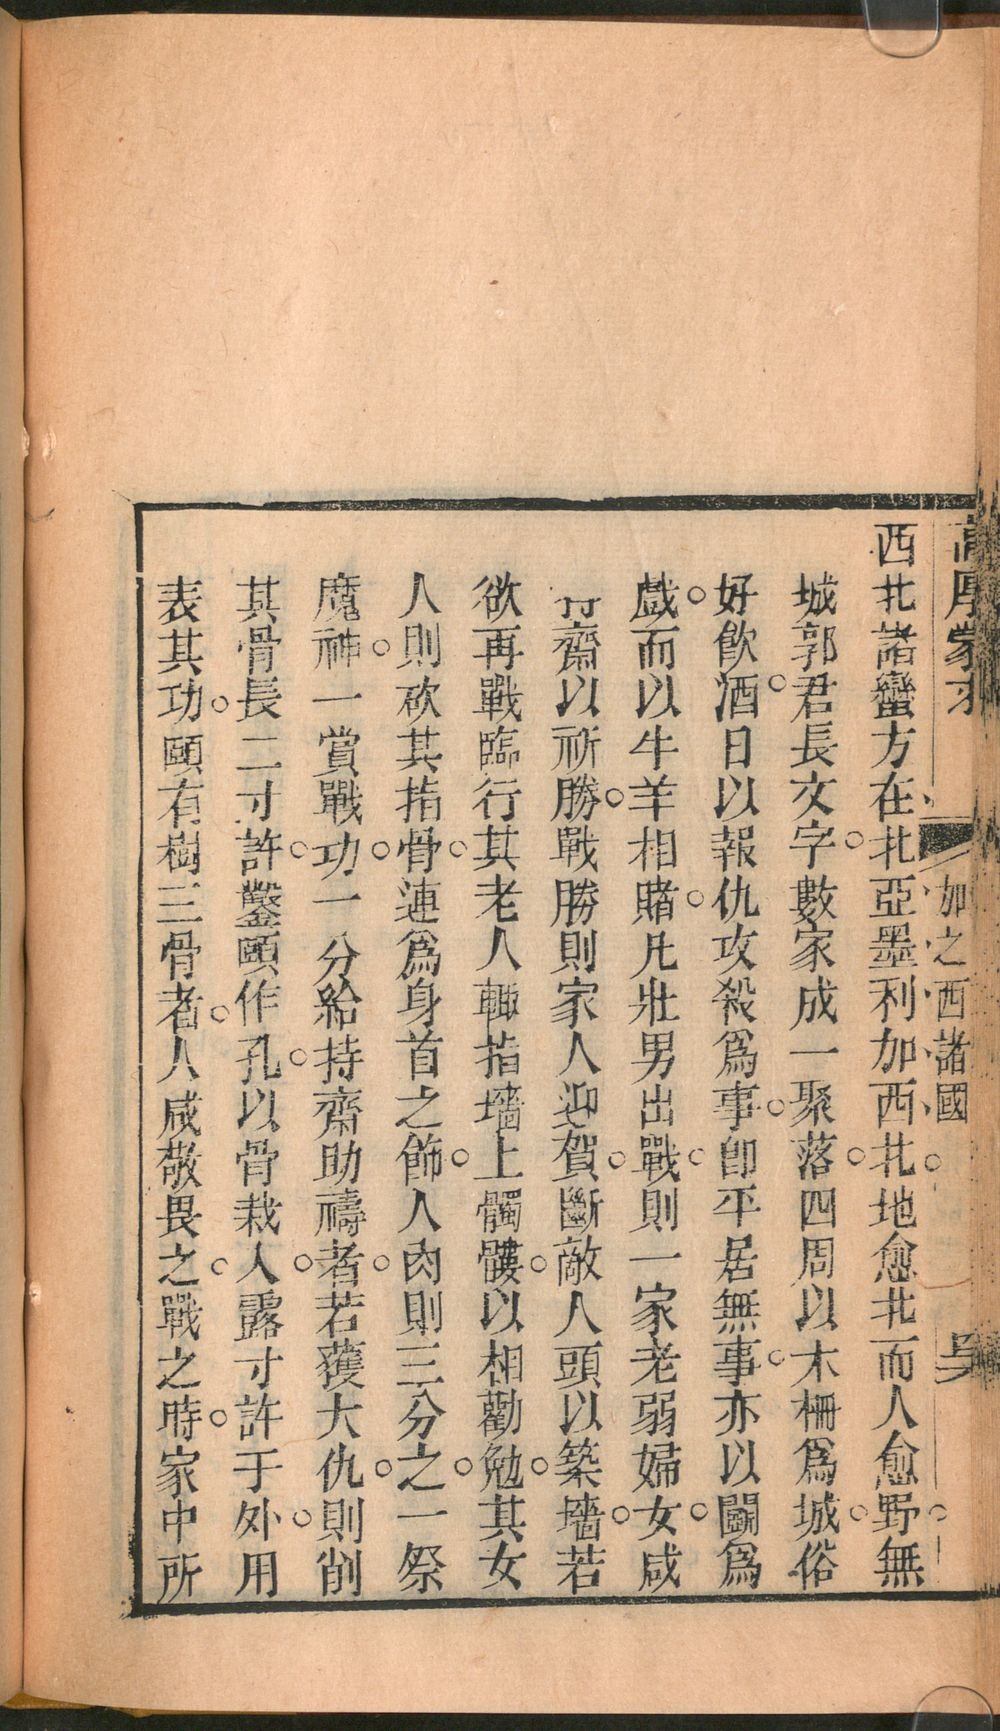 高厚蒙求
加之西諸國
吳
西北諸蠻方在北亞墨利加西北地愈北而人愈野無
城郭君長文字數家成一聚落四周以木柵爲城俗
好飮酒日以報仇攻殺爲事卽平居無事亦以鬪爲
戲而以牛羊相賭凡壯男出戰則一家老弱婦女咸
齋以祈勝戰勝則家人迎賀斷敵人頭以築墻若
欲再戰臨行其老人輒指墻上髑髏以相勸勉其女
人則砍其指骨連爲身首之飾人肉則三分之一祭
魔神一賞戰功一分給持齋助禱者若獲大仇則削
其骨長二寸許鑿頤作孔以骨栽入露寸許于外用
表其功頤有樹三骨者人咸敬畏之戰之時家中所